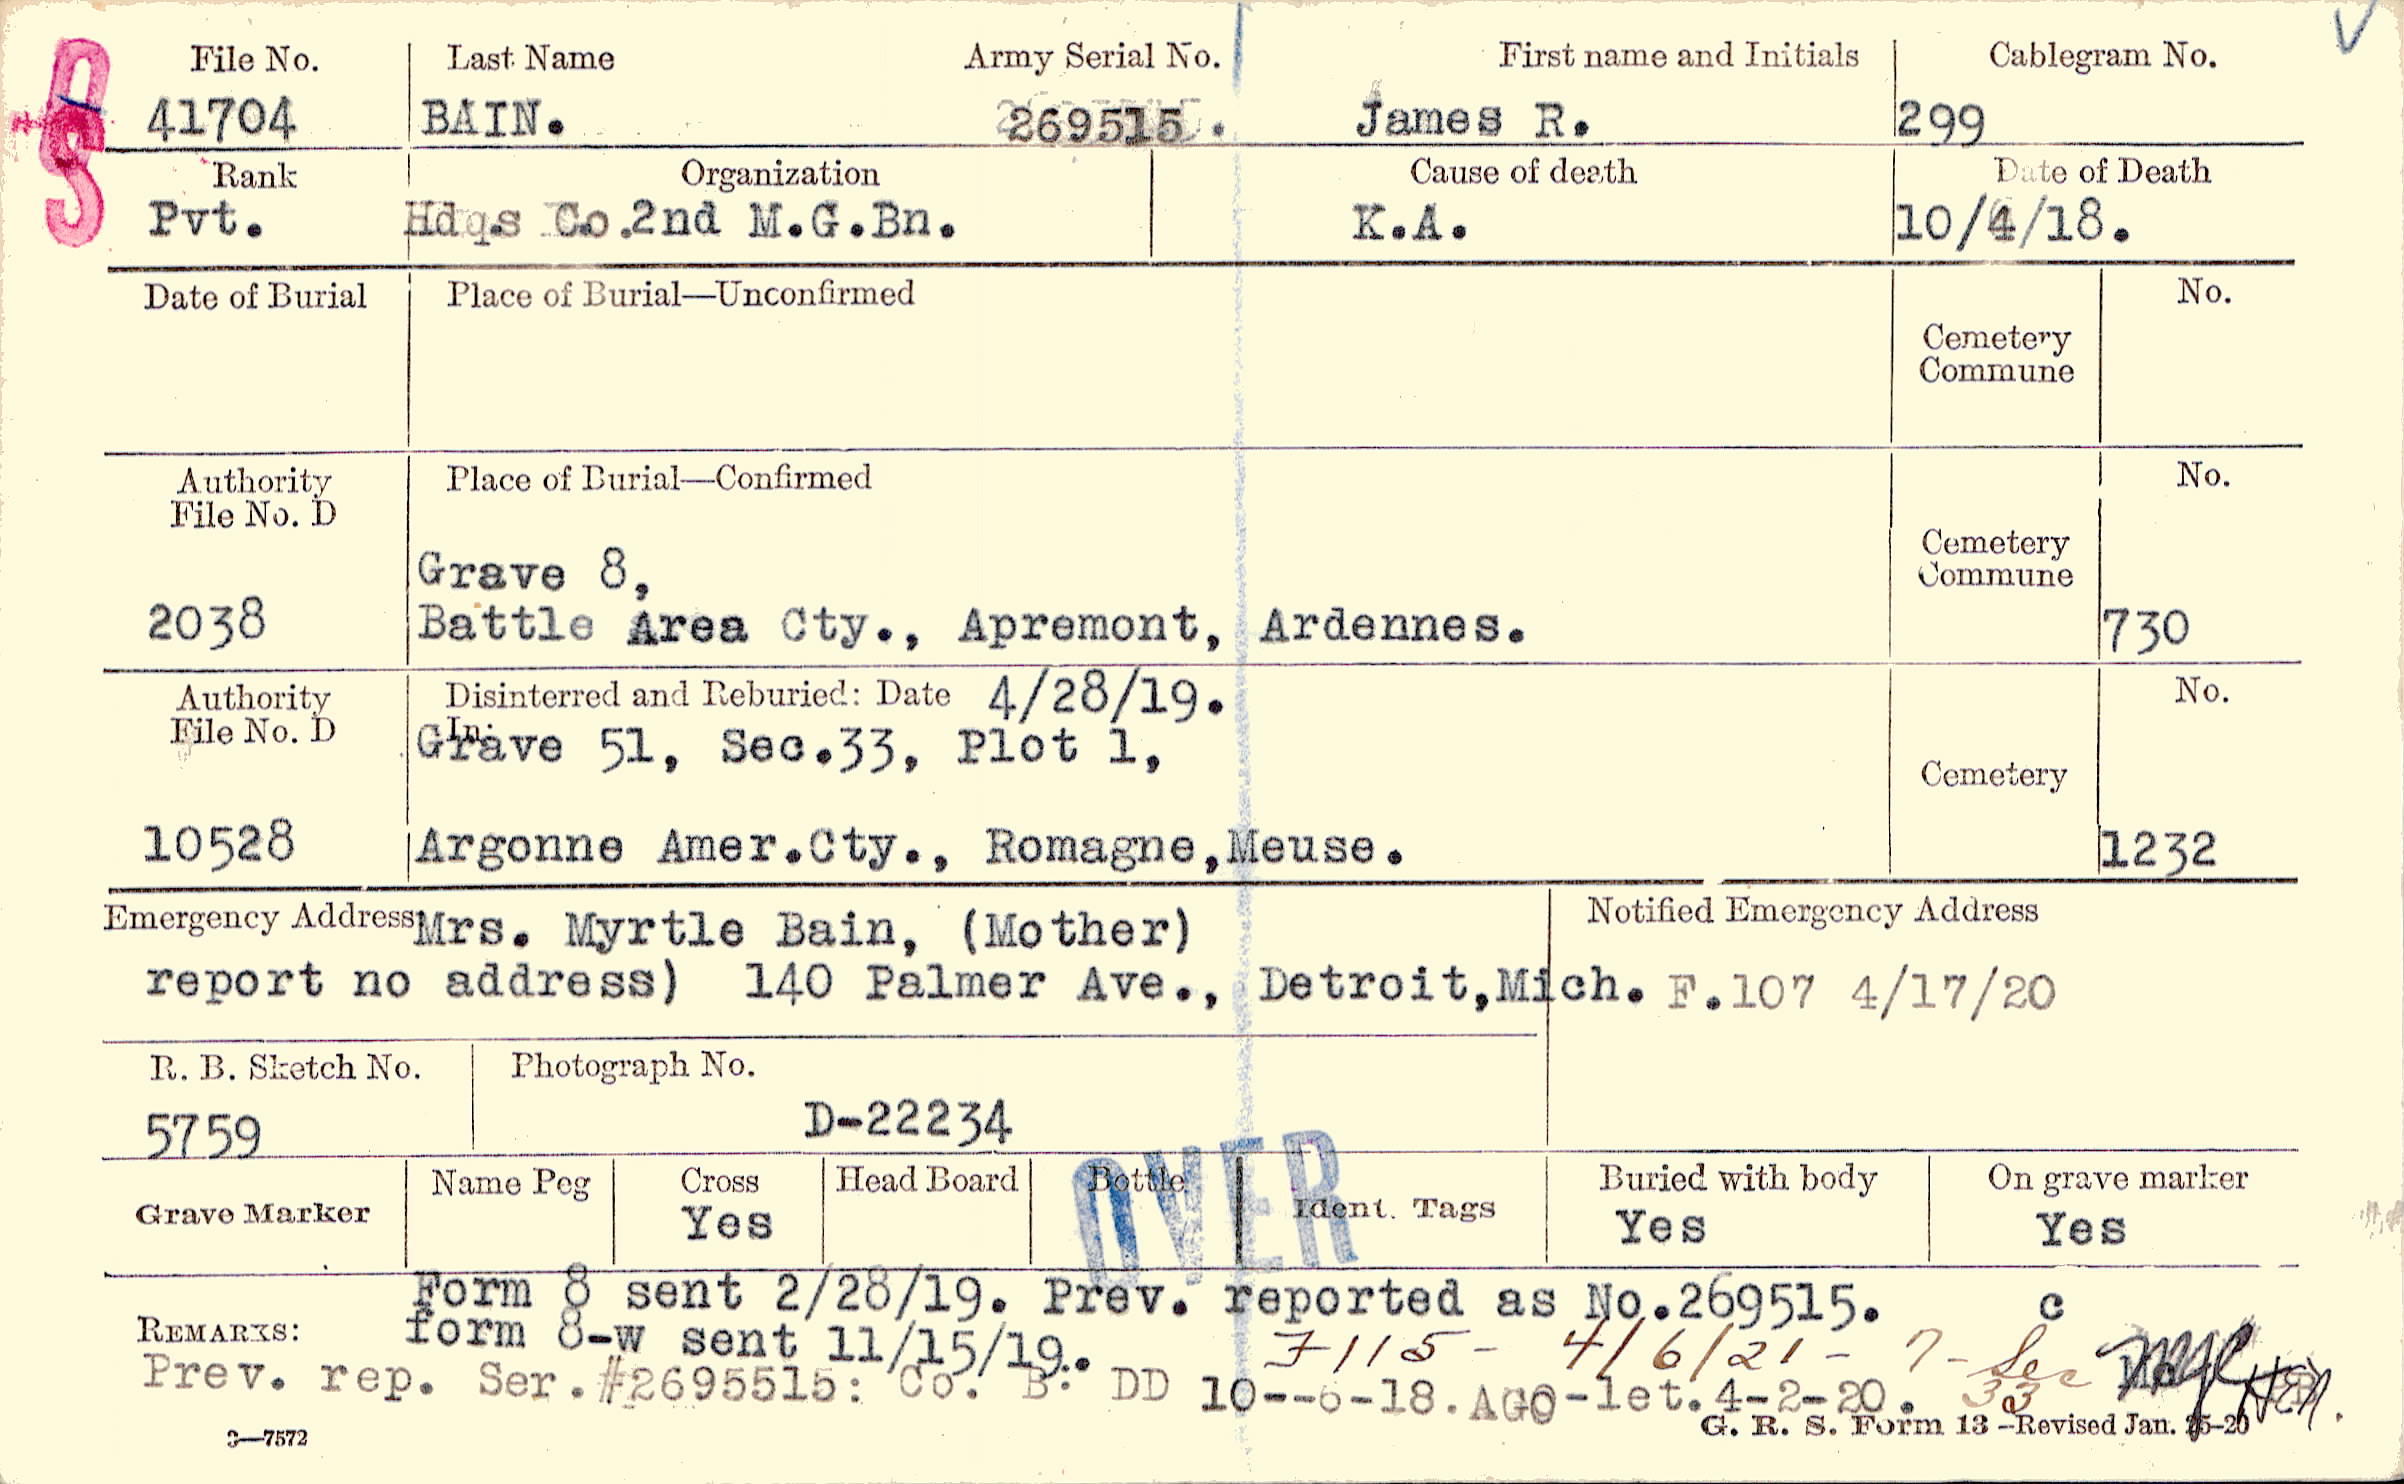 DS
File No. Last Name Army Serial No. First name and Initials Cablegram No.
41704 BAIN. 269515. James R. 299
Rank Organization Cause of death Date of Death
Pvt. Hdqs Co.2nd M.G.Bn. K.A. 10/4/18.
Date of Burial Place of Burial—Unconfirmed No.
Cemetery
Commune
Authority Place of Burial—Confirmed No.
File No. D
Cemetery
Commune
Grave 8,
2038 Battle Area Cty., Apremont, Ardennes. 730
Authority Disinterred and Reburied: Date 4/28/19. No.
File No. D In:
Grave 51, Sec.33, Plot 1,
Cemetery
10528 Argonne Amer.Cty., Romagne,Meuse. 1232
Emergency Address: Mrs. Myrtle Bain, (Mother) Notified Emergency Address
report no address) 140 Palmer Ave., Detroit,Mich. F.107 4/17/20
R. B. Sketch No. Photograph No.
5759 D-22234
OVER
Grave Marker Name Peg Cross Head Board Bottle Ident. Tags Buried with body On grave marker
Yes Yes Yes
Form 8 sent 2/28/19. Prev. reported as No.269515. c
REMARKS: form 8-w sent 11/15/19. F115 - 4/6/21 - 7 - Sec 33
Prev. rep. Ser.#2695515: Co. B. DD 10--6-18. AGO-let.4-2-20.
3—7572 G. R. S. Form 13 —Revised Jan. 25-20